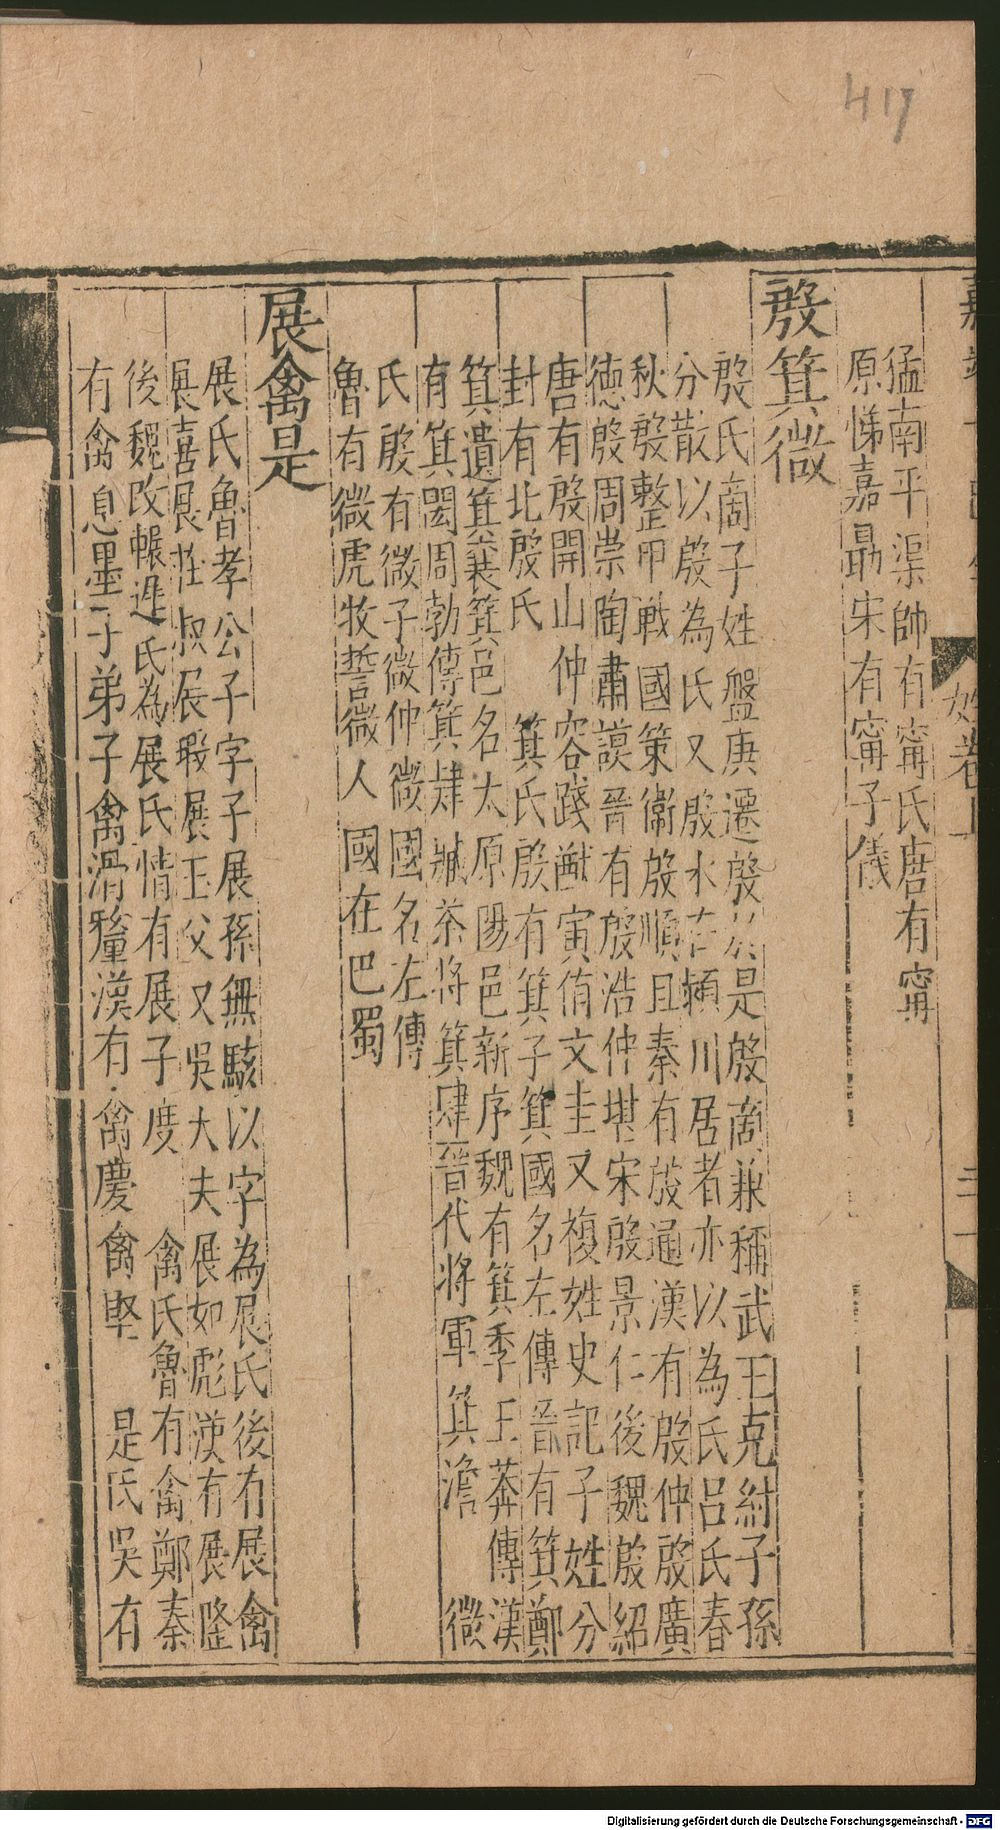 417
猛南平渠帥有甯氏唐有甯
原悌嘉勗宋有甯子儀
殷箕微
殷氏商子姓盤庚遷殷於是殷商兼稱武王克紂子孫
分散以殷為氏又殷水在潁川居者亦以為氏呂氏春
秋殷整甲戰國策衛殷順且秦有殷通漢有殷仲殷廣
徳殷周崇陶肅謨晉有殷浩仲堪宋殷景仁後魏殷紹
唐有殷開山仲容踐猷寅侑文圭又複姓史記子姓分
封有北殷氏 箕氏殷有箕子箕國名左傳晉有箕鄭
箕遺箕襄箕邑名太原陽邑新序魏有箕季王莽傳漢
有箕閎周勃傳箕肆臧荼將箕肆晉代將軍箕澹 微
氏殷有微子微仲微國名左傳
魯有微虎牧誓微人國在巴蜀
展禽是
展氏魯孝公子字子展孫無駭以字為展氏後有展禽
展喜展莊叔展瑕展玉父又吳大夫展如彪漢有展隆
後魏改輾遲氏為展氏情有展子度 禽氏魯有禽鄭秦
有禽息墨子弟子禽滑釐漢有禽慶禽堅 是氏吳有
Digitalisierung gefördert durch die Deutsche Forschungsgemeinschaft - DFG